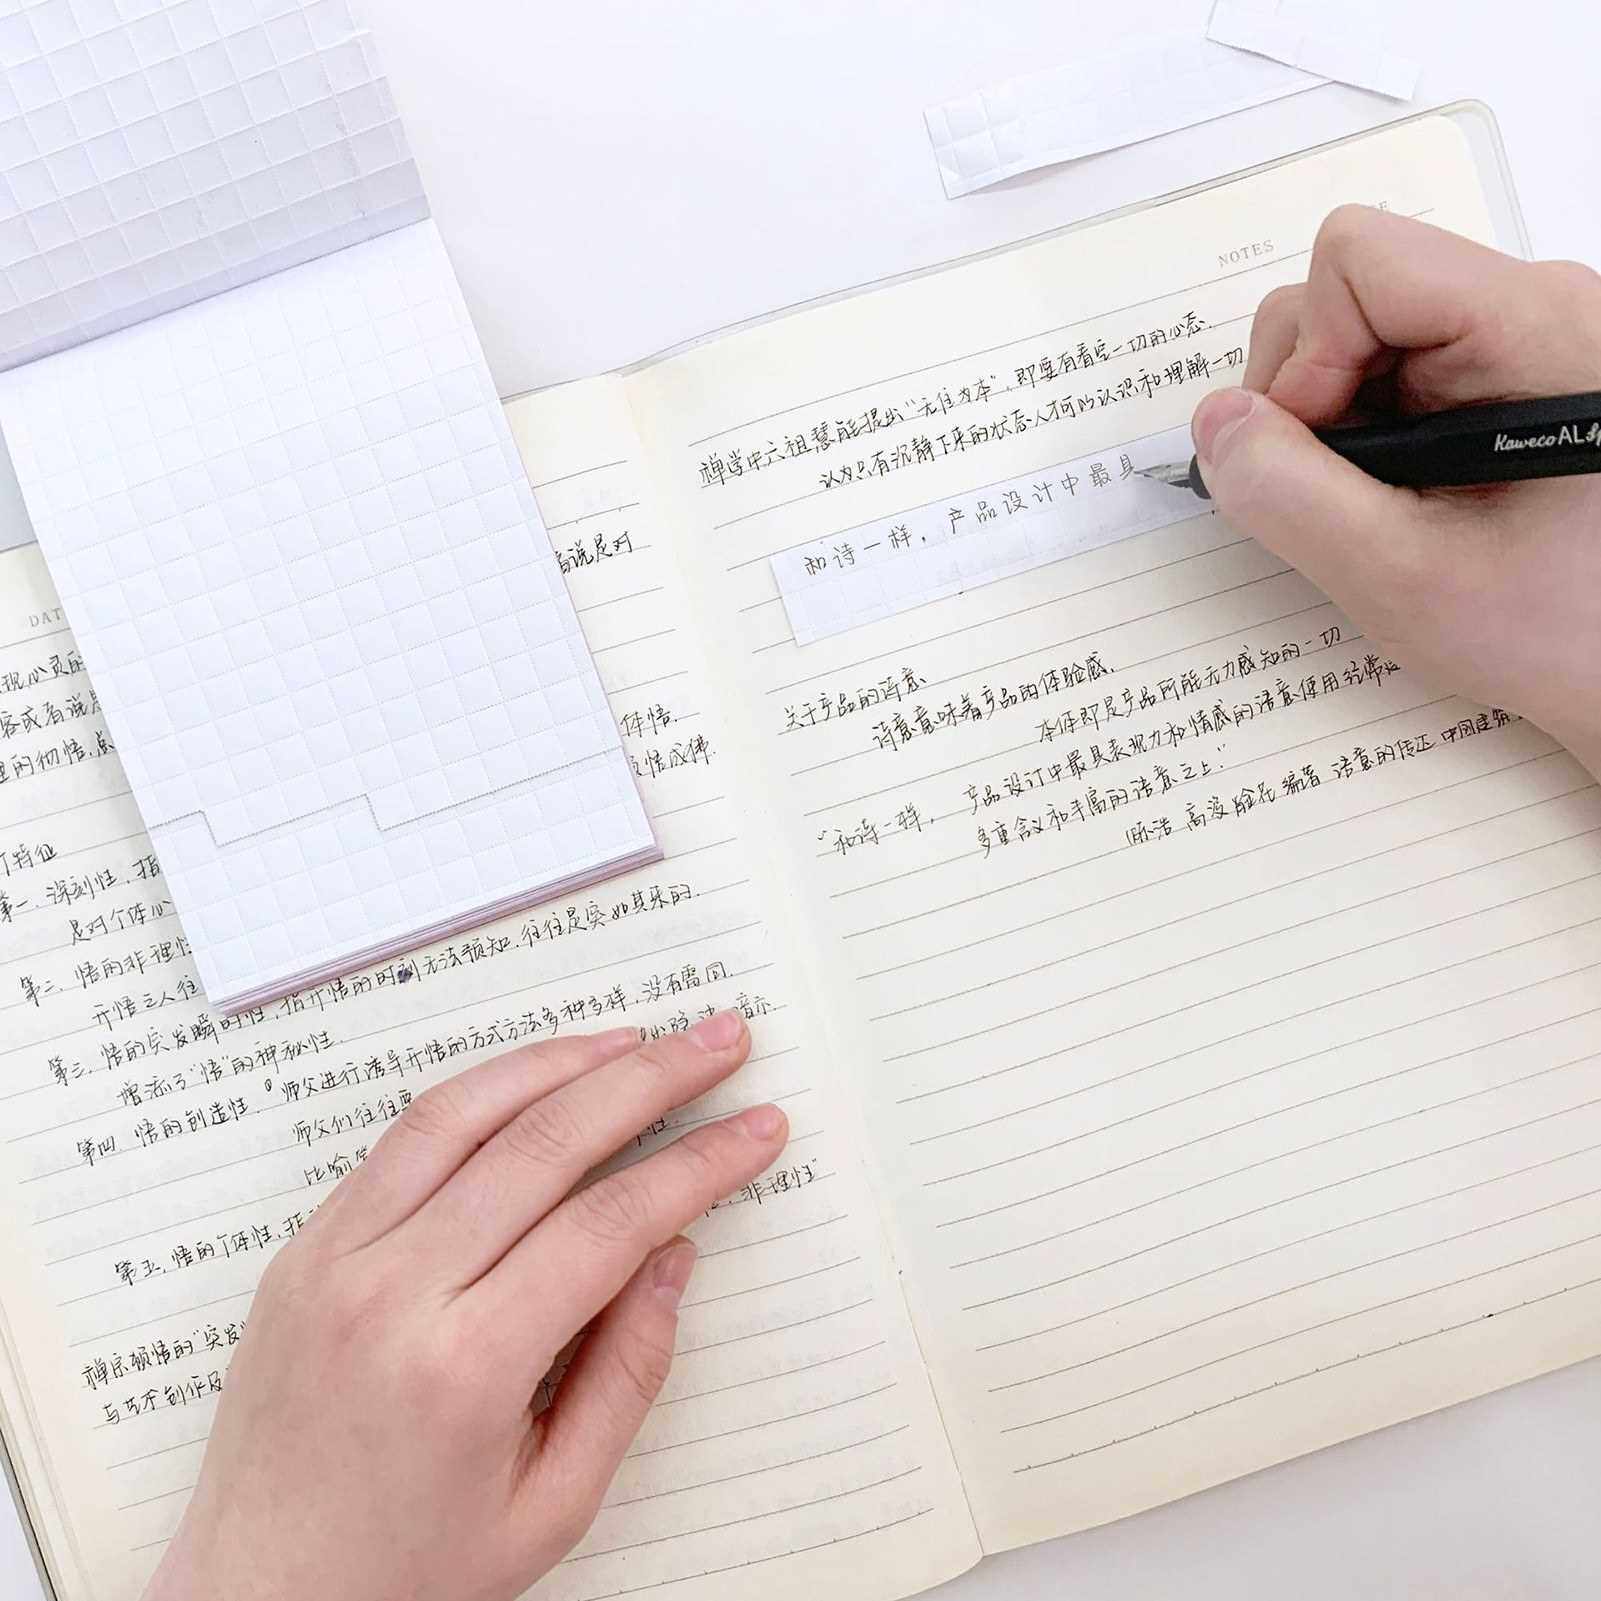 DAT
说是对
现心灵的
容或者说是
体悟.
里的彻悟.
悟成佛.
特征
第一.深刻性.指
是对个体心
第二.悟的非理性
开悟之人往
第三.悟的突发瞬时性.指开悟的时刻无法预知.往往是突如其来的.
增添了“悟”的神秘性.
第四 悟的创造性.师父进行诱导开悟的方式方法多种多样.没有雷同.
师父们往往要
暗示.
比喻
第五.悟的个体性.指
非理性”
禅宗顿悟的“突发
与艺术创作及
NOTES
禅学中六祖慧能提出“无住为本”,即要有看空一切的心态.
认为只有沉静下来的状态人才可以认识和理解一切
和诗一样,产品设计中最具
关于产品的诗意
诗意意味着产品的体验感.
本体即是产品所能无力感知的一切
“和诗一样, 产品设计中最具表现力和情感的语意使用经常
多重含义和丰富的语意之上.”
编著 语意的传达 中国建筑
Kaweco AL Sp